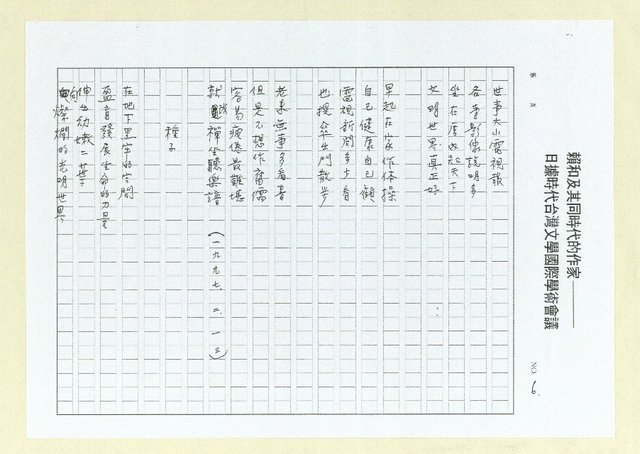 賴和及其同時代的作家——
日據時代台灣文學國際學術會議
NO. 6
第 頁
世事大小電視報
各季影像說明多
坐在屋內知天下
文明世界真正好
早起在家作体操
自己健康自己顧
電視新聞多少看
也提傘出門散步
老來無事多看書
但是不想作腐儒
容易疲倦最難堪
就 禪坐聽樂譜 (一九九七.二.一三)
種子
在地下黑容的空間
孕育發展生命的力量
伸出幼嫩的葉
向燦爛的光明世界